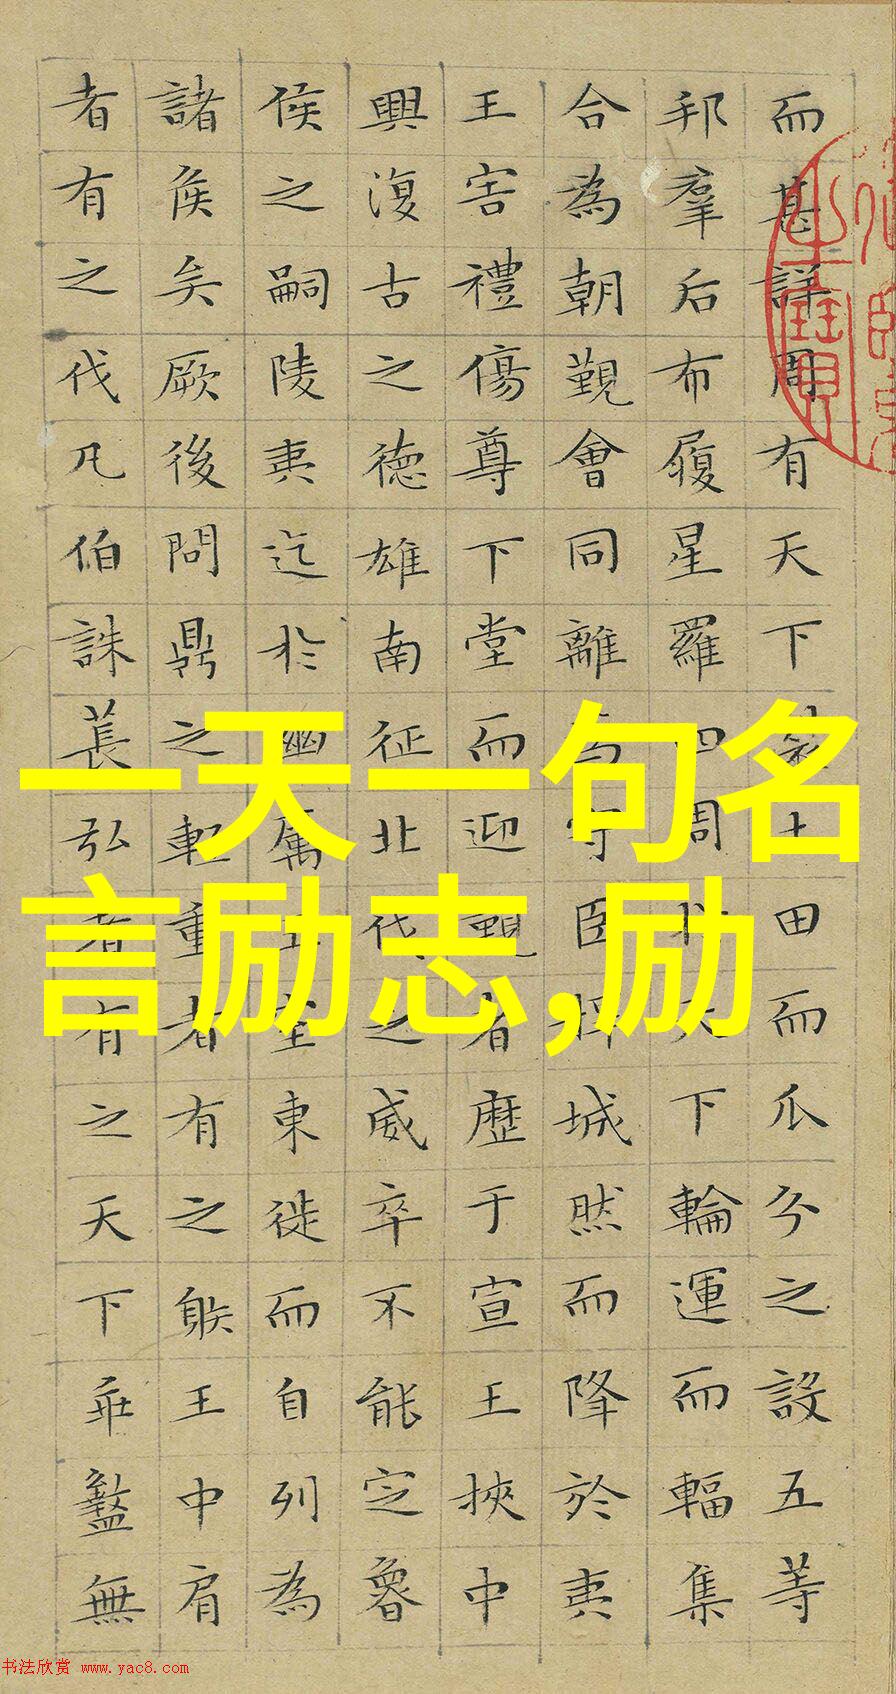 而甚詳周有天下裂土田而瓜分之設五等
邦羣后布履星羅四周于天下輪運而輻集
合為朝覲會同離為守臣扞城然而降於夷
王害禮傷尊下堂而迎覲者歷于宣王挾中
興復古之德雄南征北伐之威卒不能定魯
侯之嗣陵夷迄於幽厲王室東徙而自列為
諸侯矣厥後問鼎之輕重者有之射王中肩
者有之伐凡伯誅萇弘者有之天下乖盭無
一天一句名
言励志,励
书法欣赏 www.yac8.com